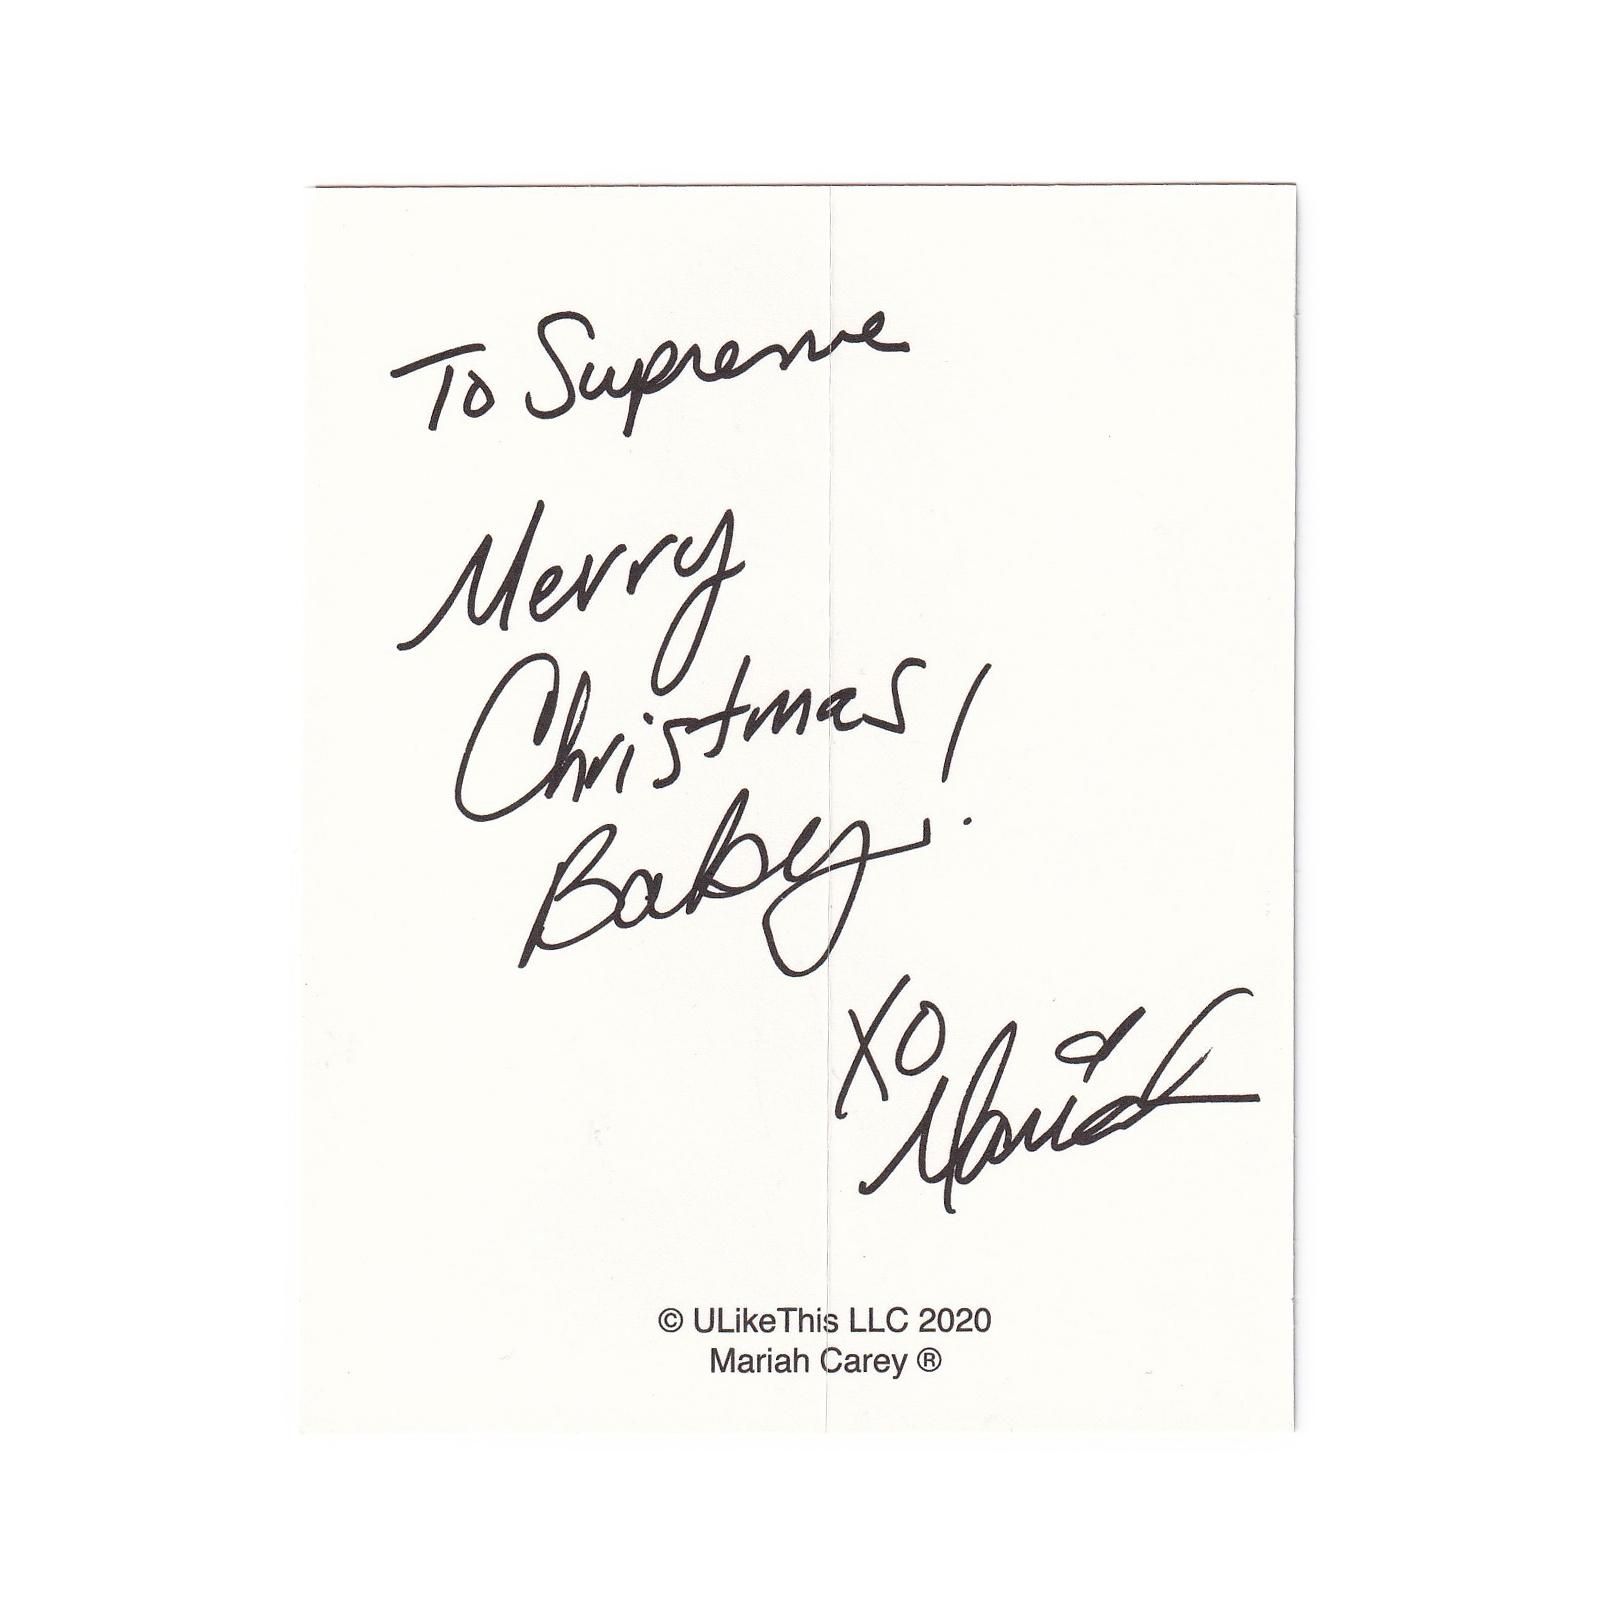 To Supreme
Merry
Christmas!
Baby
XO
Mariah
© ULikeThis LLC 2020
Mariah Carey ®